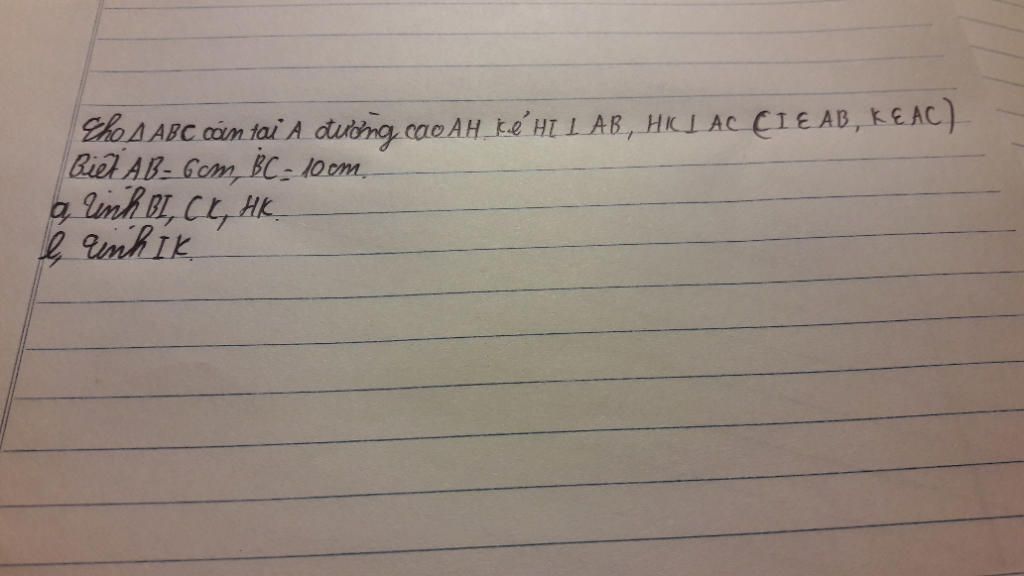 Cho Δ ABC cân tại A đường cao AH kẻ HI ⊥ AB, HK ⊥ AC (I ∈ AB, K ∈ AC)
Biết AB = 6cm, BC = 10cm.
a, Tính BI, CK, HK.
b, Tính IK.